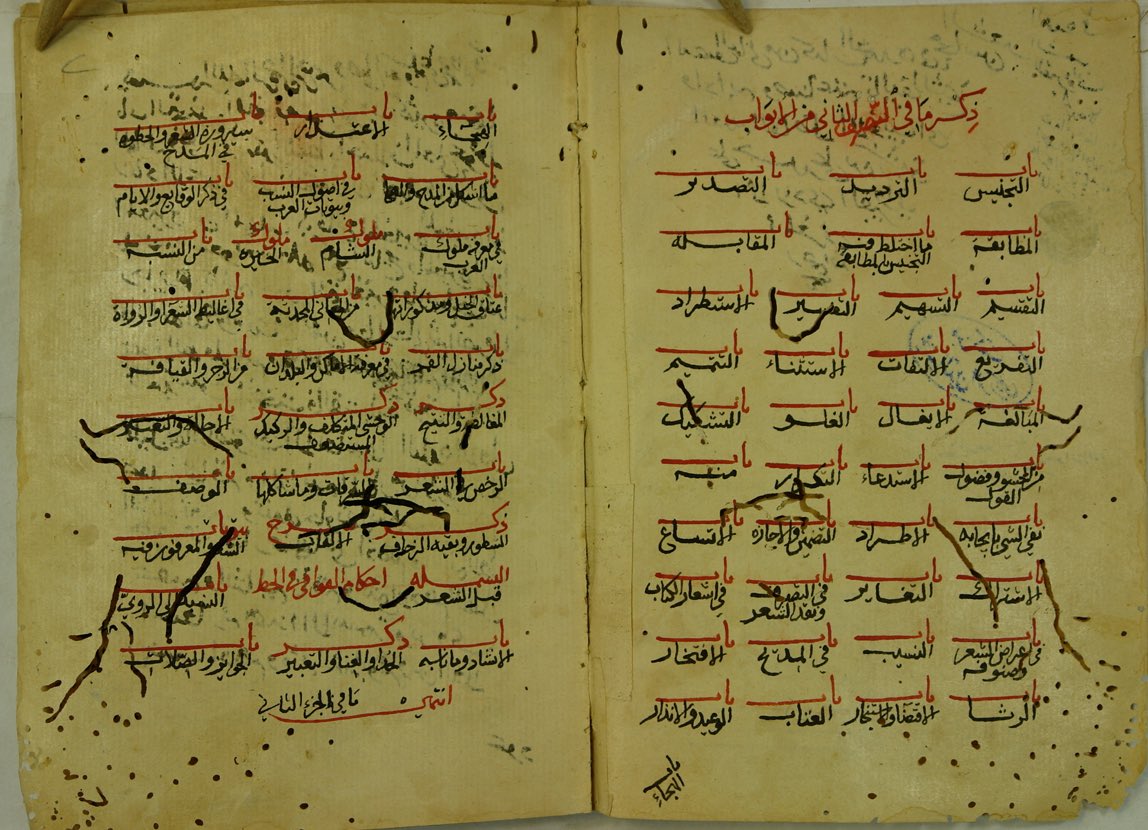 ذكر ما في النصف الثاني من الابواب
باب التجنيس باب الترديد باب التصدير
باب المطابقة باب ما اختلط فيه التجنيس بالمطابقة باب المقابله
باب التقسيم باب التسهيم باب التفسير باب الاستطراد
باب التفريع باب الالتفات باب الاستثناء باب التتميم
باب المبالغة باب الايغال باب الغلو باب التشكيك
باب من الحشو وفضول القول باب الاستدعاء باب التكرار باب منه
باب نفي الشي بايجابه باب الاطراد باب التضمين والاجازه باب الاتساع
باب الاشتراك باب التغاير باب في التصرف ونقد الشعر باب في اشعار الكتاب
باب في اغراض الشعر وصنوفه باب النسيب باب في المديح باب الافتخار
باب الرثا باب الاقتضا والاستنجاز باب العتاب باب الوعيد والانذار
باب الهجاء
باب الهجاء باب الاعتذار باب سيرورة الشعر والحظوه في المدح
باب ما اشكل من المدح والهجا باب في اصول النسب وبيوتات العرب باب في ذكر الوقايع والايام
باب في معرفة ملوك العرب ملوك الشام ملوك الحيره باب من النسبة
باب عتاق الخيل ومذكوراتها باب من المعاني المحدثة باب في اغاليط الشعرا والرواة
باب ذكر منازل القمر باب في معرفة الاماكن والبلدان باب من الزجر والعيافة
ذكر المعاظلة والتثبيج ذكر الوحشي المتكلف والركيك المستضعف باب الاحالة والتغيير
باب الرخص في الشعر باب السرقات وما شاكلها باب الوصف
ذكر الشطور وبقية الزحاف شرح الالقاب بيوتات الشعر والمعرفون فيه
البسمله قبل الشعر احكام القوافي في الخط باب النسبة الى الروي
باب الانشاد وما نابه ذكر الحدا والغنا والتعبير باب الجوايز والصلات
انتهى ما في الجزء الثاني